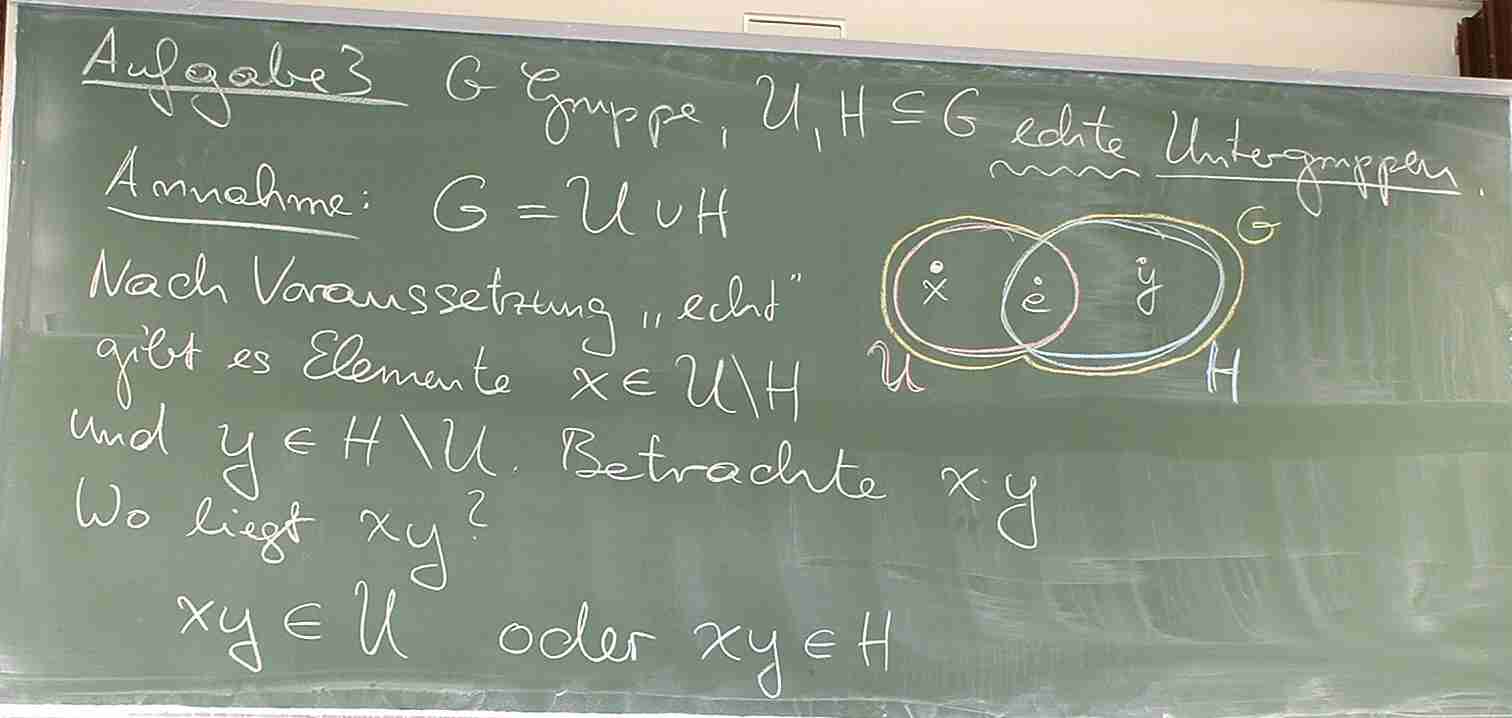 Aufgabe 3 G Gruppe, U, H ⊆ G echte Untergruppen.
Annahme: G = U ∪ H
Nach Voraussetzung „echt"
gibt es Elemente x ∈ U\H
und y ∈ H\U. Betrachte x·y
Wo liegt xy?
xy ∈ U oder xy ∈ H
G
x e y
U H